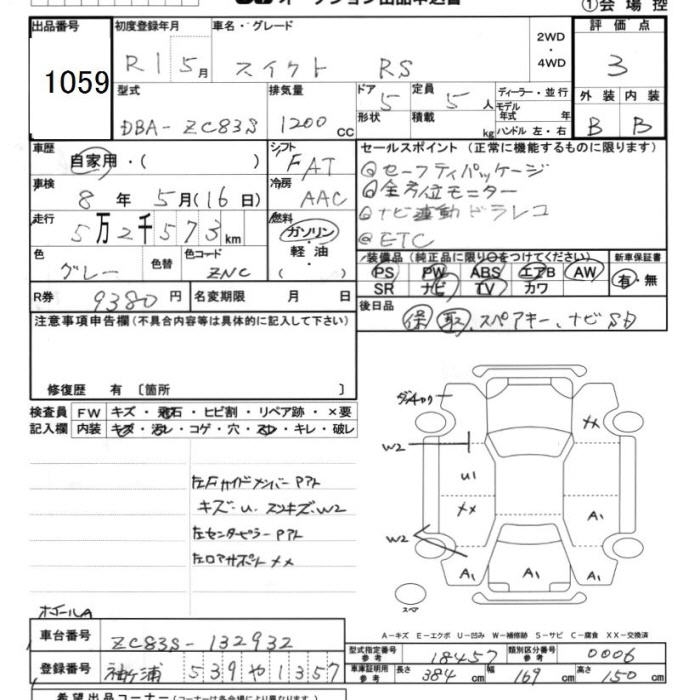 オークション出品申込書
①会場控
出品番号 初度登録年月 車名・グレード 2WD・4WD 評価点
1059 R1 5月 スイフト RS 3
型式 排気量 ドア形状 定員 ディーラー・並行 外装 内装
DBA-ZC83S 1200cc 5 5人 モデル年式 年 B B
積載 kg ハンドル 左・右
車歴 シフト セールスポイント(正常に機能するものに限ります)
自家用・( ) FAT ◎セーフティパッケージ
車検 冷房 ◎全方位モニター
8年 5月(16日) AAC ◎ナビ連動ドラレコ
走行 5万2千573km 燃料 ガソリン・軽油 ( ) ◎ETC
色 色替 色コード 装備品(純正品に限り○をつけてください) 新車保証書
グレー ZNC PS PW ABS エアB AW 有・無
SR ナビ TV カワ
R券 9380円 名変期限 月 日 後日品
保 取 、スペアキー、ナビSD
注意事項申告欄(不具合内容等は具体的に記入して下さい)
修復歴 有 〔箇所 〕
検査員記入欄 FW キズ・飛石・ヒビ割・リペア跡・×要
内装 キズ・汚レ・コゲ・穴・スレ・キレ・破レ
左Fサイドメンバー Pアト
キズ・U. スリキズ. W2
左センターピラー Pアト
左ロアサポート ××
W2
U1
××
W2
××
A1
A1
A1
A1
スペア
ホイールA
A-キズ E-エクボ U-凹み W-補修跡 S-サビ C-腐食 XX-交換済
車台番号 ZC83S-132932
型式指定番号 参考 18457 類別区分番号 参考 0006
登録番号 袖ヶ浦 539 や 1357
車庫証明用 参考 長さ 384cm 幅 169cm 高さ 150cm
希望出品コーナー(コーナーは各会場により異なります)